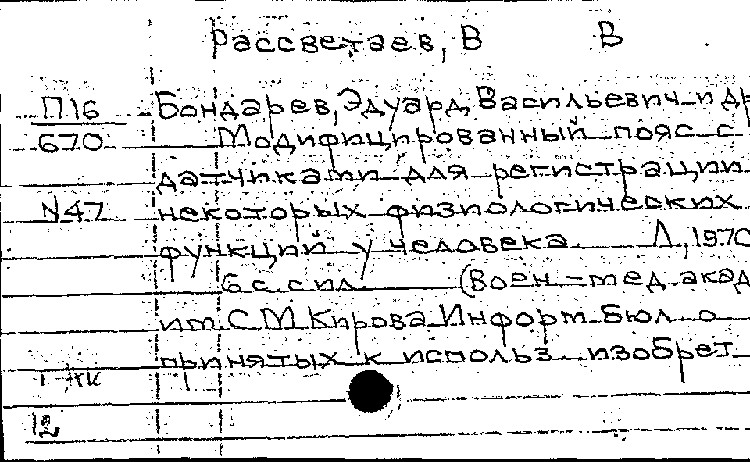 Рассветаев, В В
П16 Бондарев, Эдуард Васильевич и др
670 Модифицированный пояс с
датчиками для регистрации
N47 некоторых физиологических
функций у человека. Л., 1970
6 с. с ил. (Воен.-мед. акад
им. С.М. Кирова. Информ. бюл. о
принятых к использ. изобрет
12